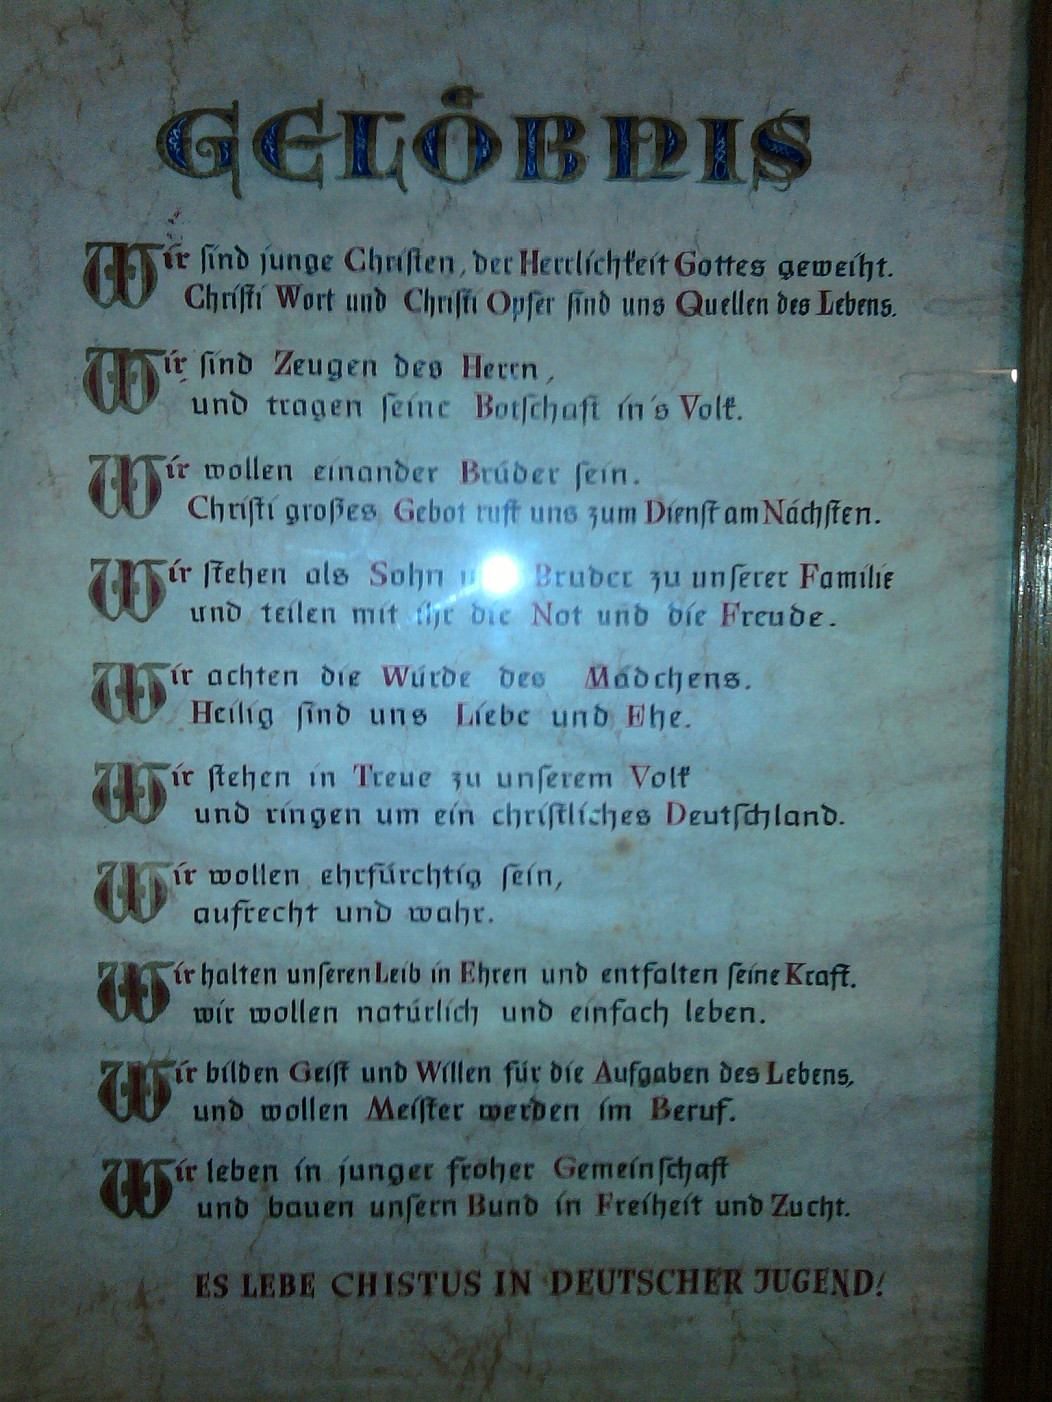 GELÖBNIS
Wir sind junge Christen, der Herrlichkeit Gottes geweiht.
Christi Wort und Christi Opfer sind uns Quellen des Lebens.
Wir sind Zeugen des Herrn,
und tragen seine Botschaft in's Volk.
Wir wollen einander Brüder sein.
Christi großes Gebot ruft uns zum Dienst am Nächsten.
Wir stehen als Sohn Bruder zu unserer Familie
und teilen mit ihr die Not und die Freude.
Wir achten die Würde des Mädchens.
Heilig sind uns Liebe und Ehe.
Wir stehen in Treue zu unserem Volk
und ringen um ein christliches Deutschland.
Wir wollen ehrfürchtig sein,
aufrecht und wahr.
Wir halten unseren Leib in Ehren und entfalten seine Kraft.
wir wollen natürlich und einfach leben.
Wir bilden Geist und Willen für die Aufgaben des Lebens,
und wollen Meister werden im Beruf.
Wir leben in junger froher Gemeinschaft
und bauen unsern Bund in Freiheit und Zucht.
ES LEBE CHISTUS IN DEUTSCHER JUGEND!